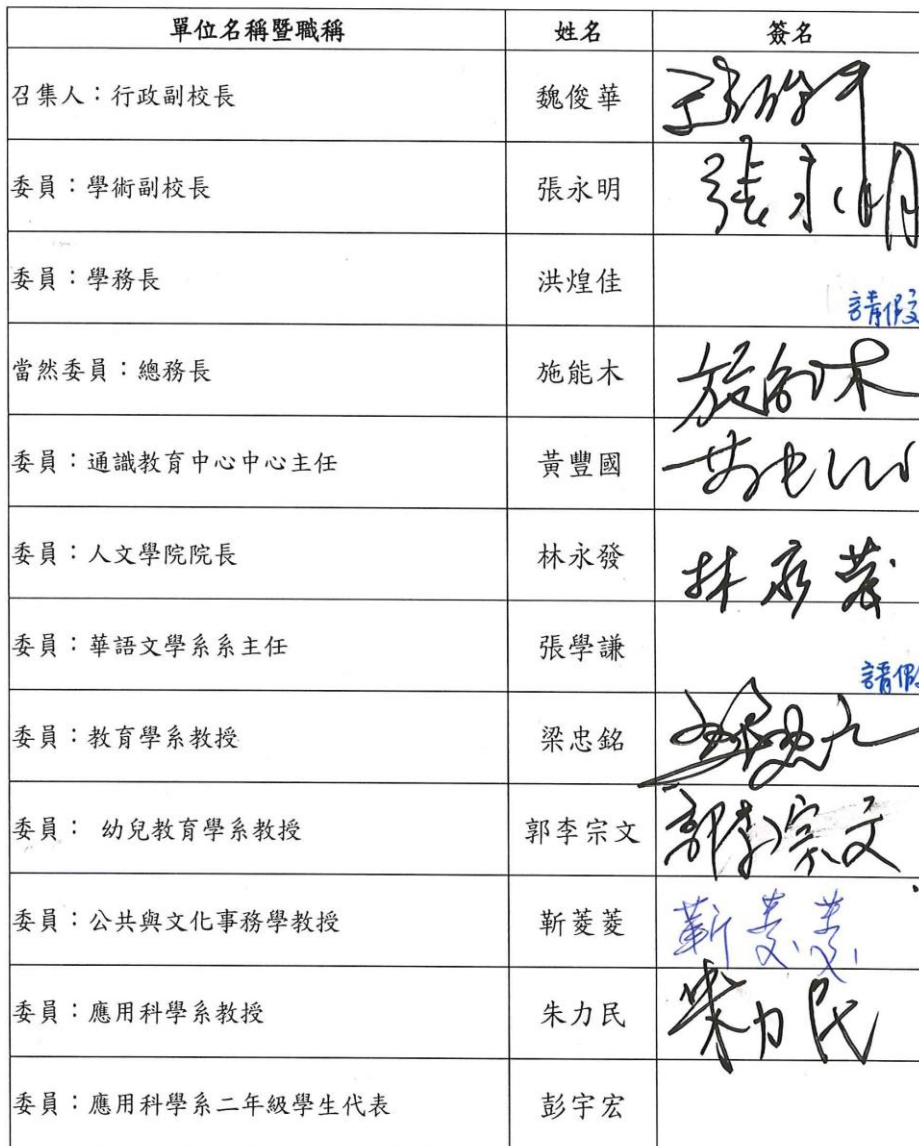 單位名稱暨職稱 姓名 簽名
召集人：行政副校長 魏俊華
委員：學術副校長 張永明 張永明
委員：學務長 洪煌佳 請假
當然委員：總務長 施能木 施能木
委員：通識教育中心中心主任 黃豐國
委員：人文學院院長 林永發 林永發
委員：華語文學系系主任 張學謙 請假
委員：教育學系教授 梁忠銘
委員： 幼兒教育學系教授 郭李宗文 郭李宗文
委員：公共與文化事務學教授 靳菱菱 靳菱菱
委員：應用科學系教授 朱力民 朱力民
委員：應用科學系二年級學生代表 彭宇宏